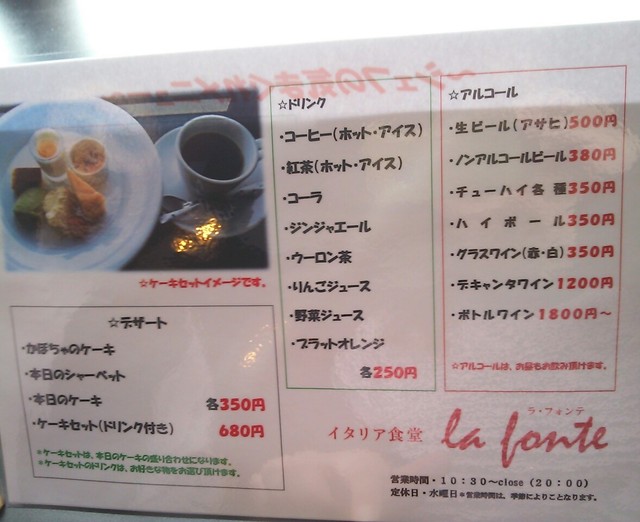 ☆ケーキセットイメージです。
☆デザート
・かぼちゃのケーキ
・本日のシャーベット
・本日のケーキ 各350円
・ケーキセット(ドリンク付き) 680円
*ケーキセットは、本日のケーキの盛り合わせになります。
*ケーキセットのドリンクは、お好きな物をお選び頂けます。
☆ドリンク
・コーヒー(ホット・アイス)
・紅茶(ホット・アイス)
・コーラ
・ジンジャエール
・ウーロン茶
・りんごジュース
・野菜ジュース
・ブラットオレンジ
各250円
☆アルコール
・生ビール(アサヒ)500円
・ノンアルコールビール380円
・チューハイ各種350円
・ハイボール350円
・グラスワイン(赤・白)350円
・デキャンタワイン1200円
・ボトルワイン1800円~
☆アルコールは、お昼もお飲み頂けます。
ラ・フォンテ
イタリア食堂 la fonte
営業時間・10:30~close(20:00)
定休日・水曜日*営業時間は、季節によりことなります。